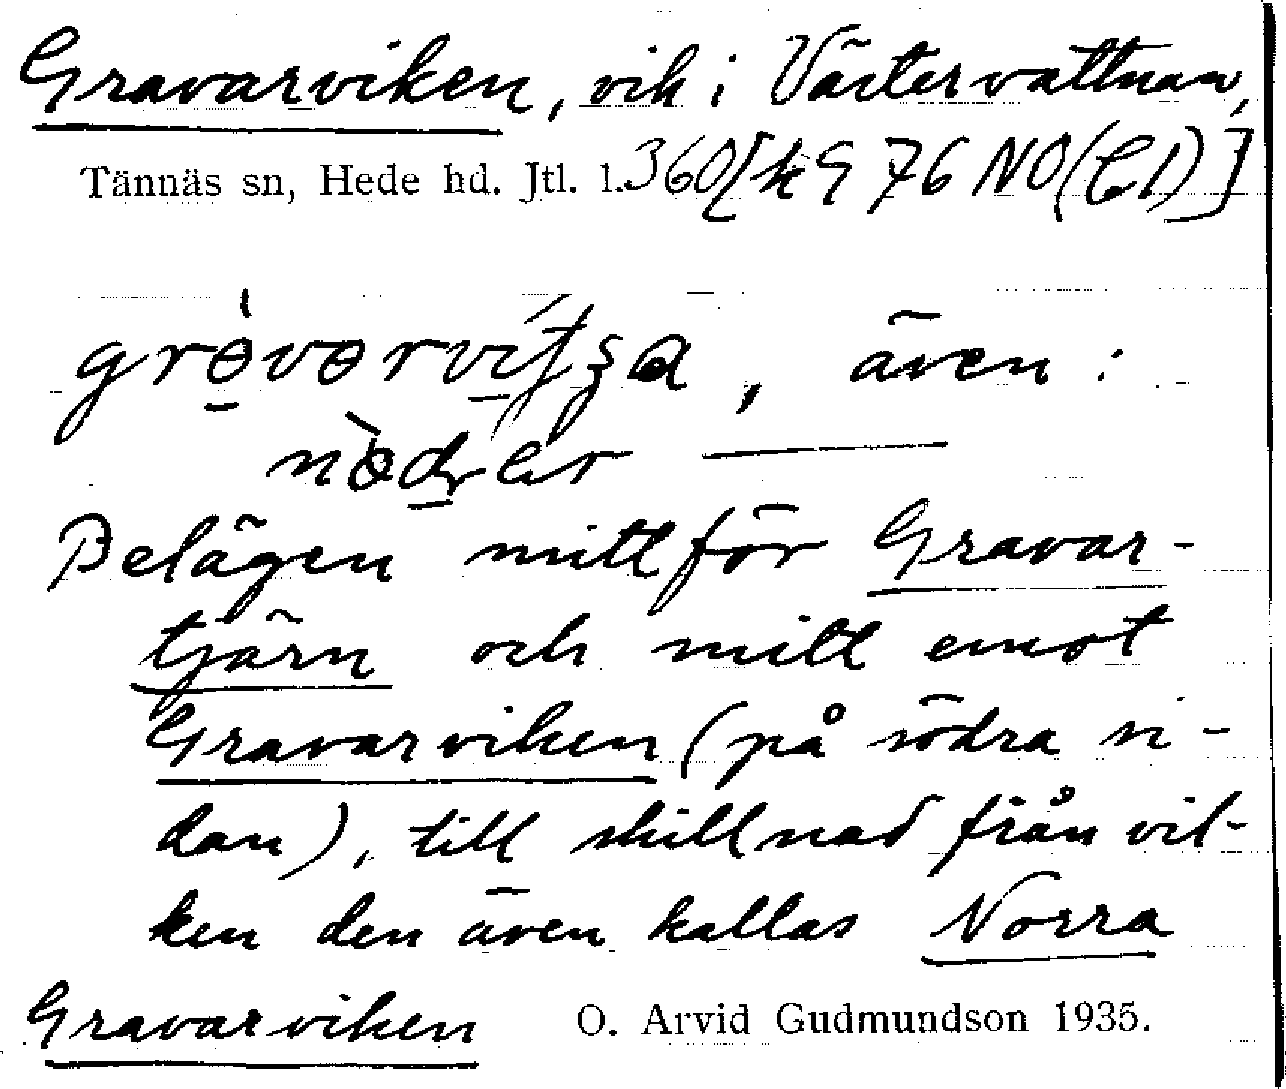 Gravarviken, vik i Västervattnan,
Tännäs sn, Hede hd. Jtl. l. 360 [k 9 76 NO (C1)]
även:
Belägen mittför Gravar-
tjärn och mitt emot
Gravarviken (på södra si-
dan), till skillnad från vil-
ken den även kallas Norra
Gravarviken O. Arvid Gudmundson 1935.